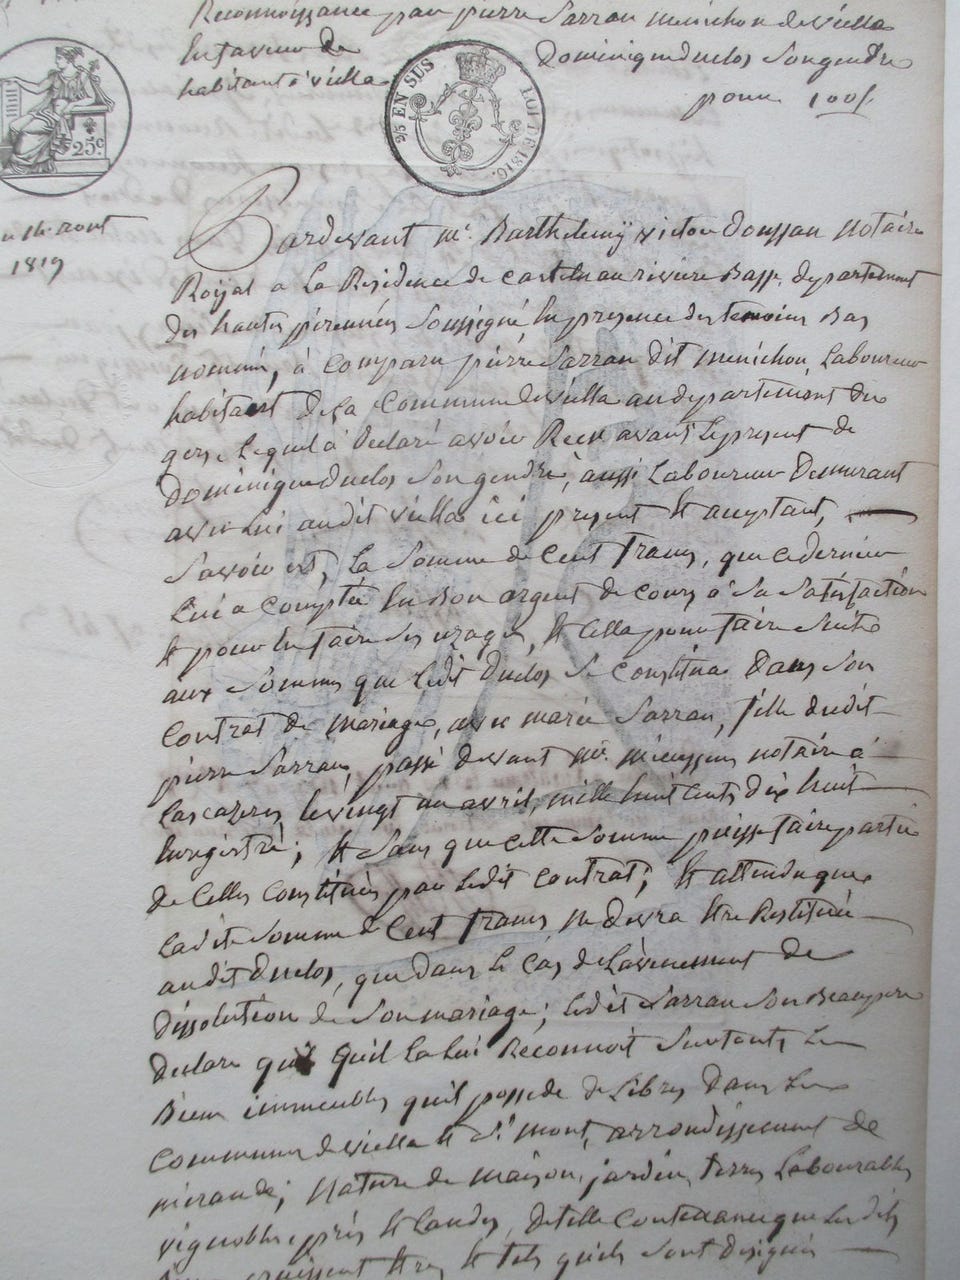 Reconnoissance par pierre Sarran menichon de viella
En faveur de Dominique duclos Son gendre
habitant à viella
pour 100f
2/5 EN SUS
LOI DE 1816.
25c.
du 16. aout
1819
Pardevant Me. Barthelemy victor Doussau Notaire
Royal a La Residence de castelnau riviere Basse, departement
des hautes pirennées Soussigné, En presence des temoins Bas
nommés, à Comparu pierre Sarran dit menichon, Laboureur
habitant de La Commune de viella au departement du
gers, Lequel à declaré avoir Recu avant Le present de
Dominique duclos Son gendre, aussi Laboureur Demurant
avec Lui audit viella ici present et acceptant,
Savoir est, La Somme de Cent francs, que ce dernier
Lui a Comptée En Bon argent de cours à Sa Satisfaction
et pour En faire Ses usages, et Cella pour faire Suite
aux Sommes que Ledit Duclos Se Constitua Dans Son
Contrat de mariage, avec marie Sarran, fille dudit
pierre Sarran, passé devant Me. notaire à
Lascazeres Le vingt un avril, mille huit cents dix huit
Enregistré; et Sans que cette Somme puisse faire partie
de Celles Constituées par Ledit Contrat; Et attendu que
Ladite Somme de Cent francs ne devra Etre Restituée
audit Duclos, que Dans Le Cas de L'avenement de
dissolution de Son mariage; Ledit Sarran Son Beau pere
declare qu'il La Lui Reconnoit Sur touts Les
Biens immeubles qu'il possede de Libres Dans Les
Communes de viella et St. mont, arrondissement de
mirande; Nature de maison, jardin, terres Labourables
vignobles, près et Landes, de telle Contenance que Lesdits
Biens puissent Etre, et tels qu'ils Sont designés